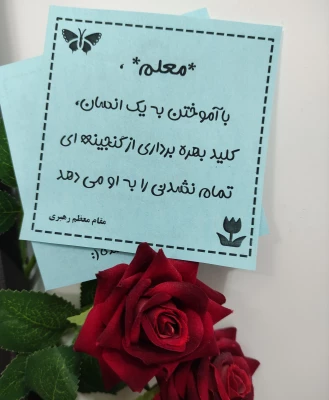 *معلم* ،
با آموختن به یک انسان،
کلید بهره برداری از گنجینه ای
تمام نشدنی را به او می دهد
مقام معظم رهبری